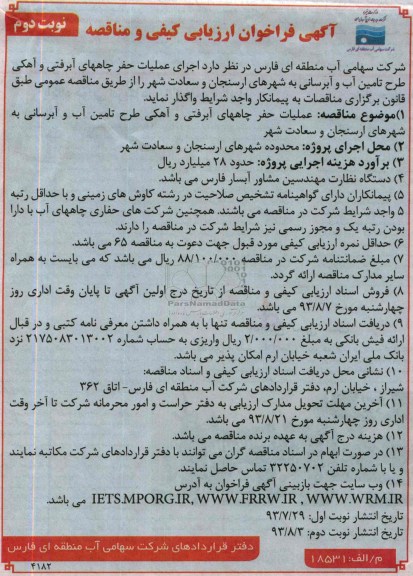 نوبت دوم
آگهی فراخوان ارزیابی کیفی و مناقصه
شرکت سهامی آب منطقه ای فارس در نظر دارد اجرای عملیات حفر چاههای آبرفتی و آهکی
طرح تامین آب و آبرسانی به شهرهای ارسنجان و سعادت شهر را از طریق مناقصه عمومی طبق
قانون برگزاری مناقصات به پیمانکار واجد شرایط واگذار نماید.
۱)موضوع مناقصه: عملیات حفر چاههای آبرفتی و آهکی طرح تامین آب و آبرسانی به
شهرهای ارسنجان و سعادت شهر
۲) محل اجرای پروژه: محدوده شهرهای ارسنجان و سعادت شهر
۳) برآورد هزینه اجرایی پروژه: حدود ۲۸ میلیارد ریال
۴) دستگاه نظارت مهندسین مشاور آبسار فارس می باشد.
۵) پیمانکاران دارای گواهینامه تشخیص صلاحیت در رشته کاوش های زمینی و با حداقل رتبه
۵ واجد شرایط شرکت در مناقصه می باشند. همچنین شرکت های حفاری چاههای آب با دارا
بودن رتبه یک و مجوز رسمی نیز شرایط شرکت در مناقصه را دارند.
۶) حداقل نمره ارزیابی کیفی مورد قبول جهت دعوت به مناقصه ۶۵ می باشد.
۷) مبلغ ضمانتنامه شرکت در مناقصه ۸۸/۱۰۰/۰۰۰ ریال می باشد که می بایست به همراه
سایر مدارک مناقصه ارائه گردد.
۸) فروش اسناد ارزیابی کیفی و مناقصه از تاریخ درج اولین آگهی تا پایان وقت اداری روز
چهارشنبه مورخ ۹۳/۸/۷ می باشد.
۹) دریافت اسناد ارزیابی کیفی و مناقصه تنها با به همراه داشتن معرفی نامه کتبی و در قبال
ارائه فیش بانکی به مبلغ ۲/۰۰۰/۰۰۰ ریال واریزی به حساب شماره ۲۱۷۵۰۸۳۰۱۳۰۰۲ نزد
بانک ملی ایران شعبه خیابان ارم امکان پذیر می باشد.
۱۰) نشانی محل دریافت اسناد ارزیابی کیفی و اسناد مناقصه:
شیراز ، خیابان ارم، دفتر قراردادهای شرکت آب منطقه ای فارس- اتاق ۳۶۲
۱۱) آخرین مهلت تحویل مدارک ارزیابی به دفتر حراست و امور محرمانه شرکت تا آخر وقت
اداری روز چهارشنبه مورخ ۹۳/۸/۲۱ می باشد.
۱۲) هزینه درج آگهی به عهده برنده مناقصه می باشد.
۱۳) در صورت ابهام در اسناد مناقصه گران می توانند با دفتر قراردادهای شرکت مکاتبه نمایند
و یا با شماره تلفن ۳۲۲۵۰۷۰۲ تماس حاصل نمایند.
۱۴) وب سایت جهت بازبینی آگهی فراخوان به آدرس
IETS.MPORG.IR, WWW.FRRW.IR , WWW.WRM.IR می باشد.
تاریخ انتشار نوبت اول: ۹۳/۷/۲۹
تاریخ انتشار نوبت دوم: ۹۳/۸/۳
م/الف: ۱۸۵۳۱
دفتر قراردادهای شرکت سهامی آب منطقه ای فارس
۴۱۸۲